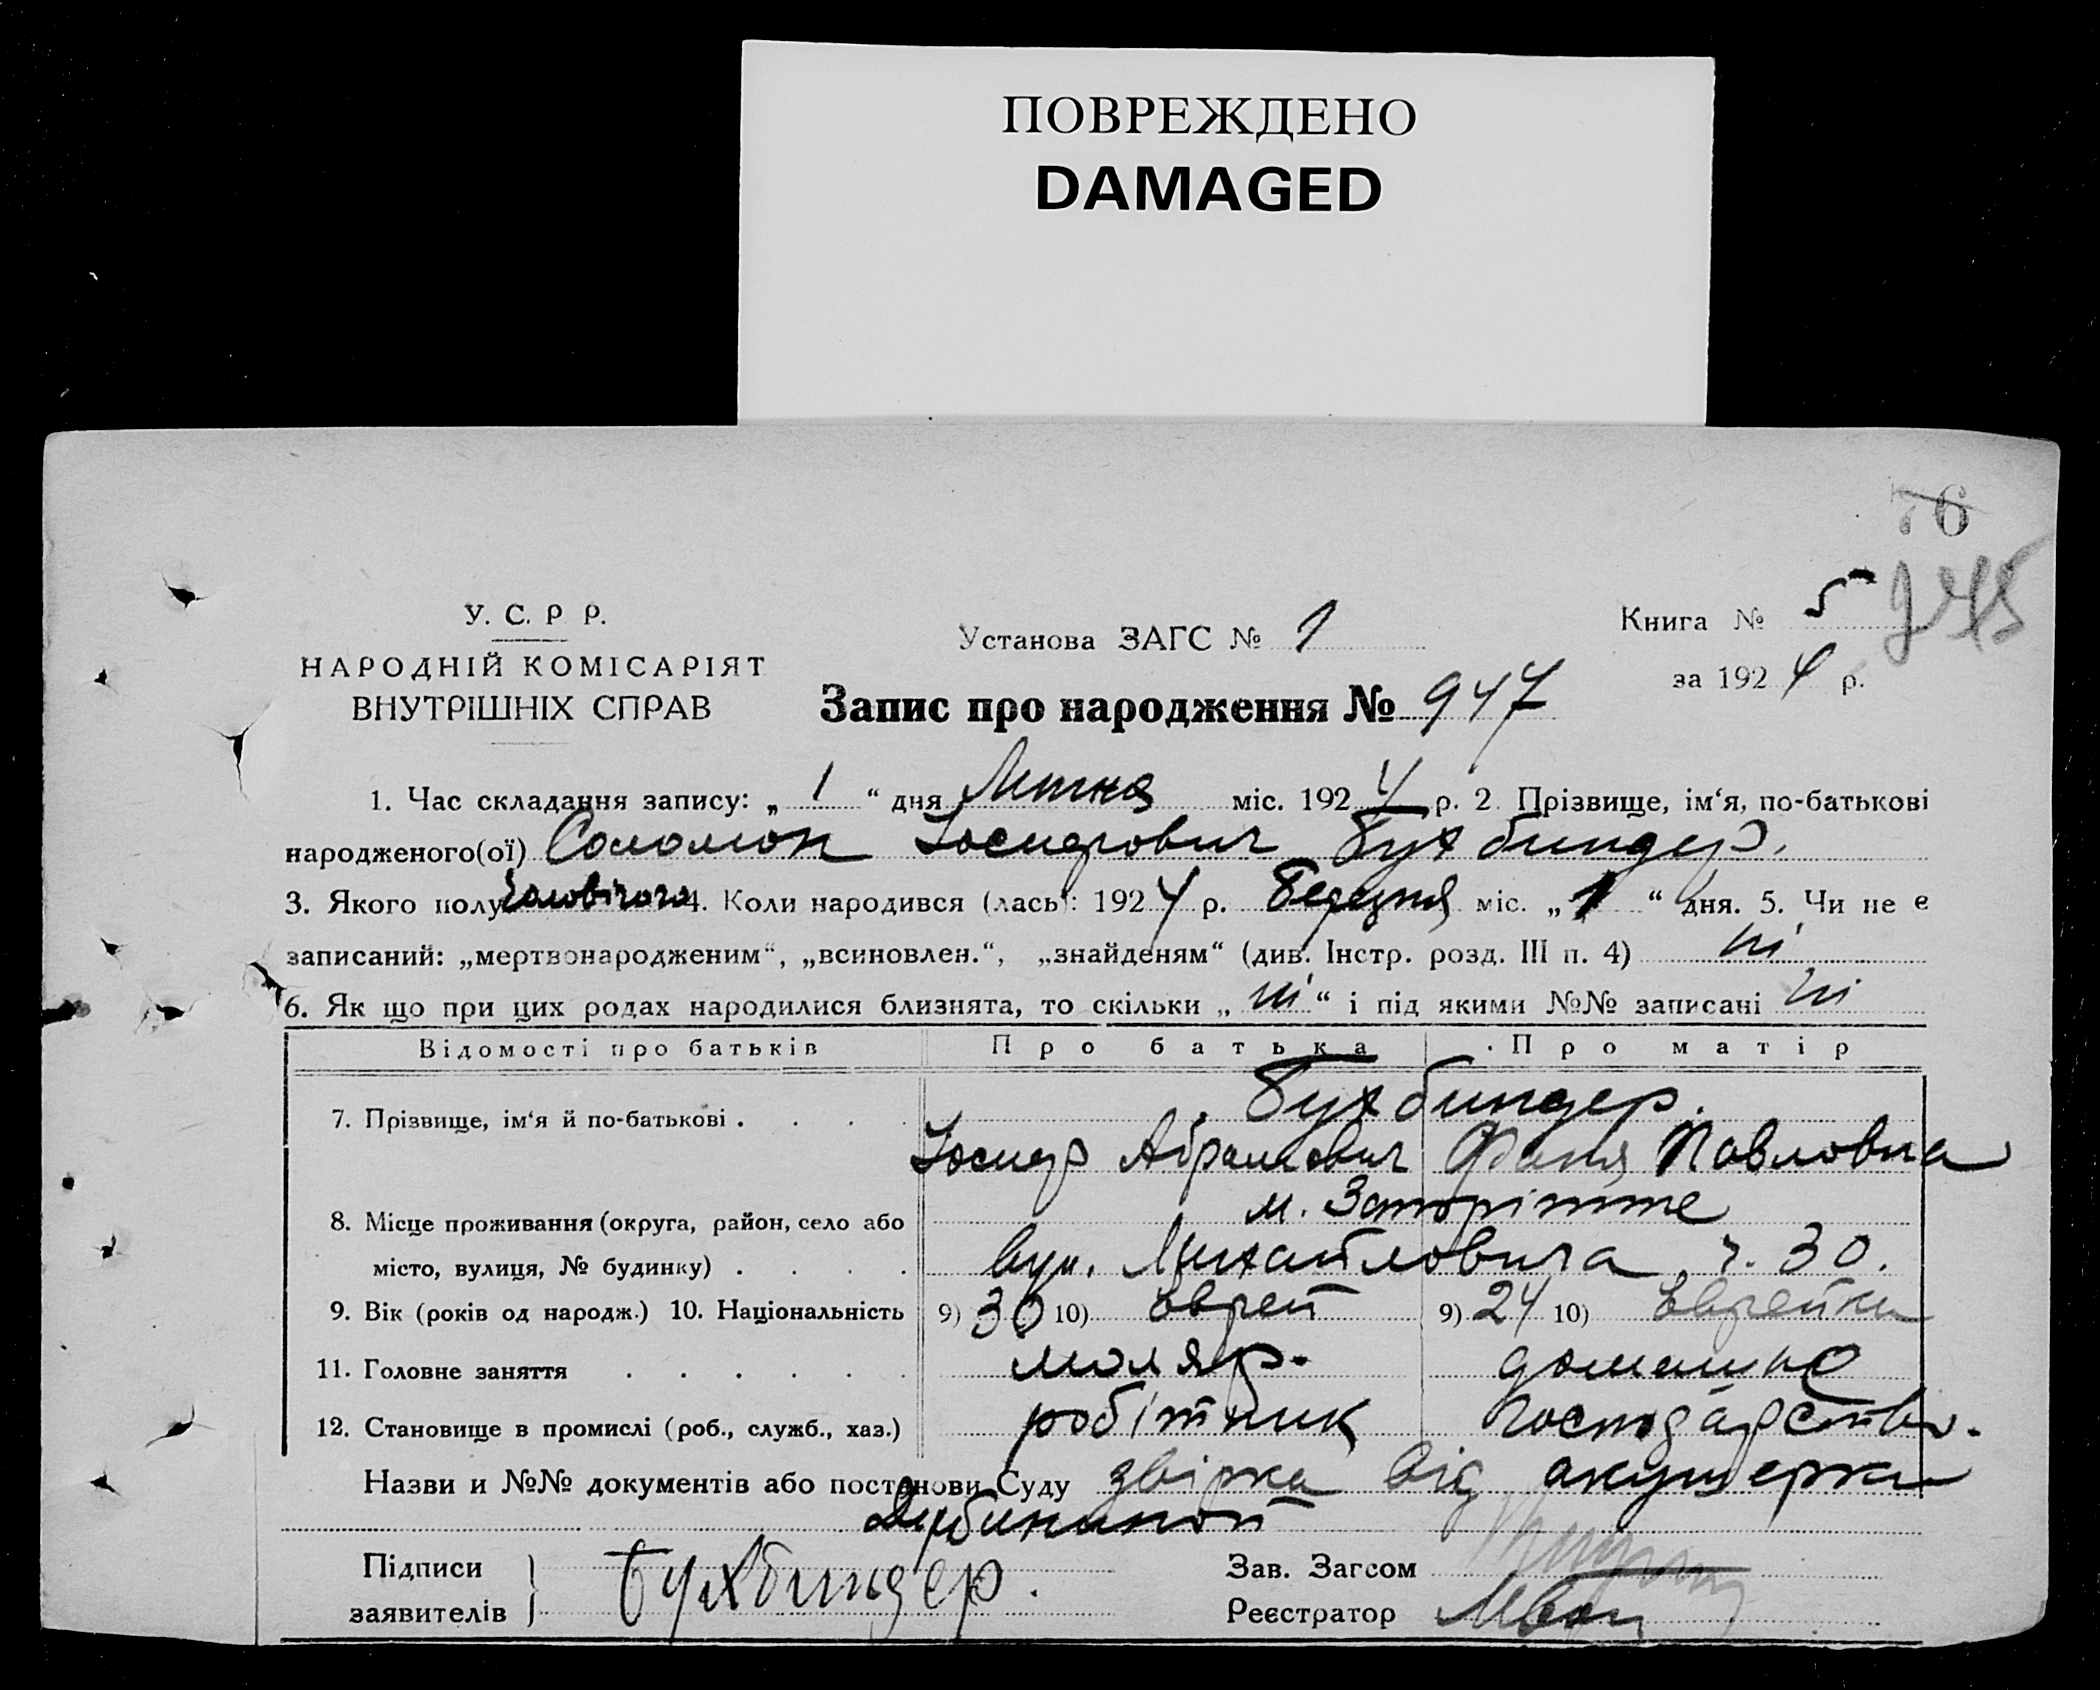 ПОВРЕЖДЕНО
DAMAGED
6
245
У. С. Р Р.
НАРОДНІЙ КОМІСАРІЯТ
ВНУТРІШНІХ СПРАВ
Установа ЗАГС № 1
Книга № 5
за 1924 р.
Запис про народження № 947
1. Час складання запису: „ 1 “ дня Липня міс. 1924 р. 2. Прізвище, ім‘я, по-батькові
народженого(ої) Соломон Иосифович Бухбиндер.
3. Якого полу Чоловічого 4. Коли народився (лась): 1924 р. Березня міс. „ 1 “ дня. 5. Чи не є
записаний: „мертвонародженим“, „всиновлен.“, „знайденям“ (див. Інстр. розд. III п. 4) ні
6. Як що при цих родах народилися близнята, то скільки „ ні “ і під якими №№ записані ні
Відомості про батьків Про батька Про матір
Бухбиндер.
7. Прізвище, ім‘я й по-батькові . . . .
Иосиф Абрамович Фаня Павловна
м. Запоріжже
8. Місце проживання (округа, район, село або
місто, вулиця, № будинку) . . . . вул. Михайловича ч. 30.
9. Вік (років од народж.) 10. Національність 9) 30 10) Еврей 9) 24 10) Еврейка
11. Головне заняття . . . . . . маляр. домашнє
12. Становище в промислі (роб., служб., хаз.) робітник господарство.
Назви и №№ документів або постанови Суду звірка від акушерки
Підписи
заявителів
Бухбиндер.
Зав. Загсом
Реєстратор